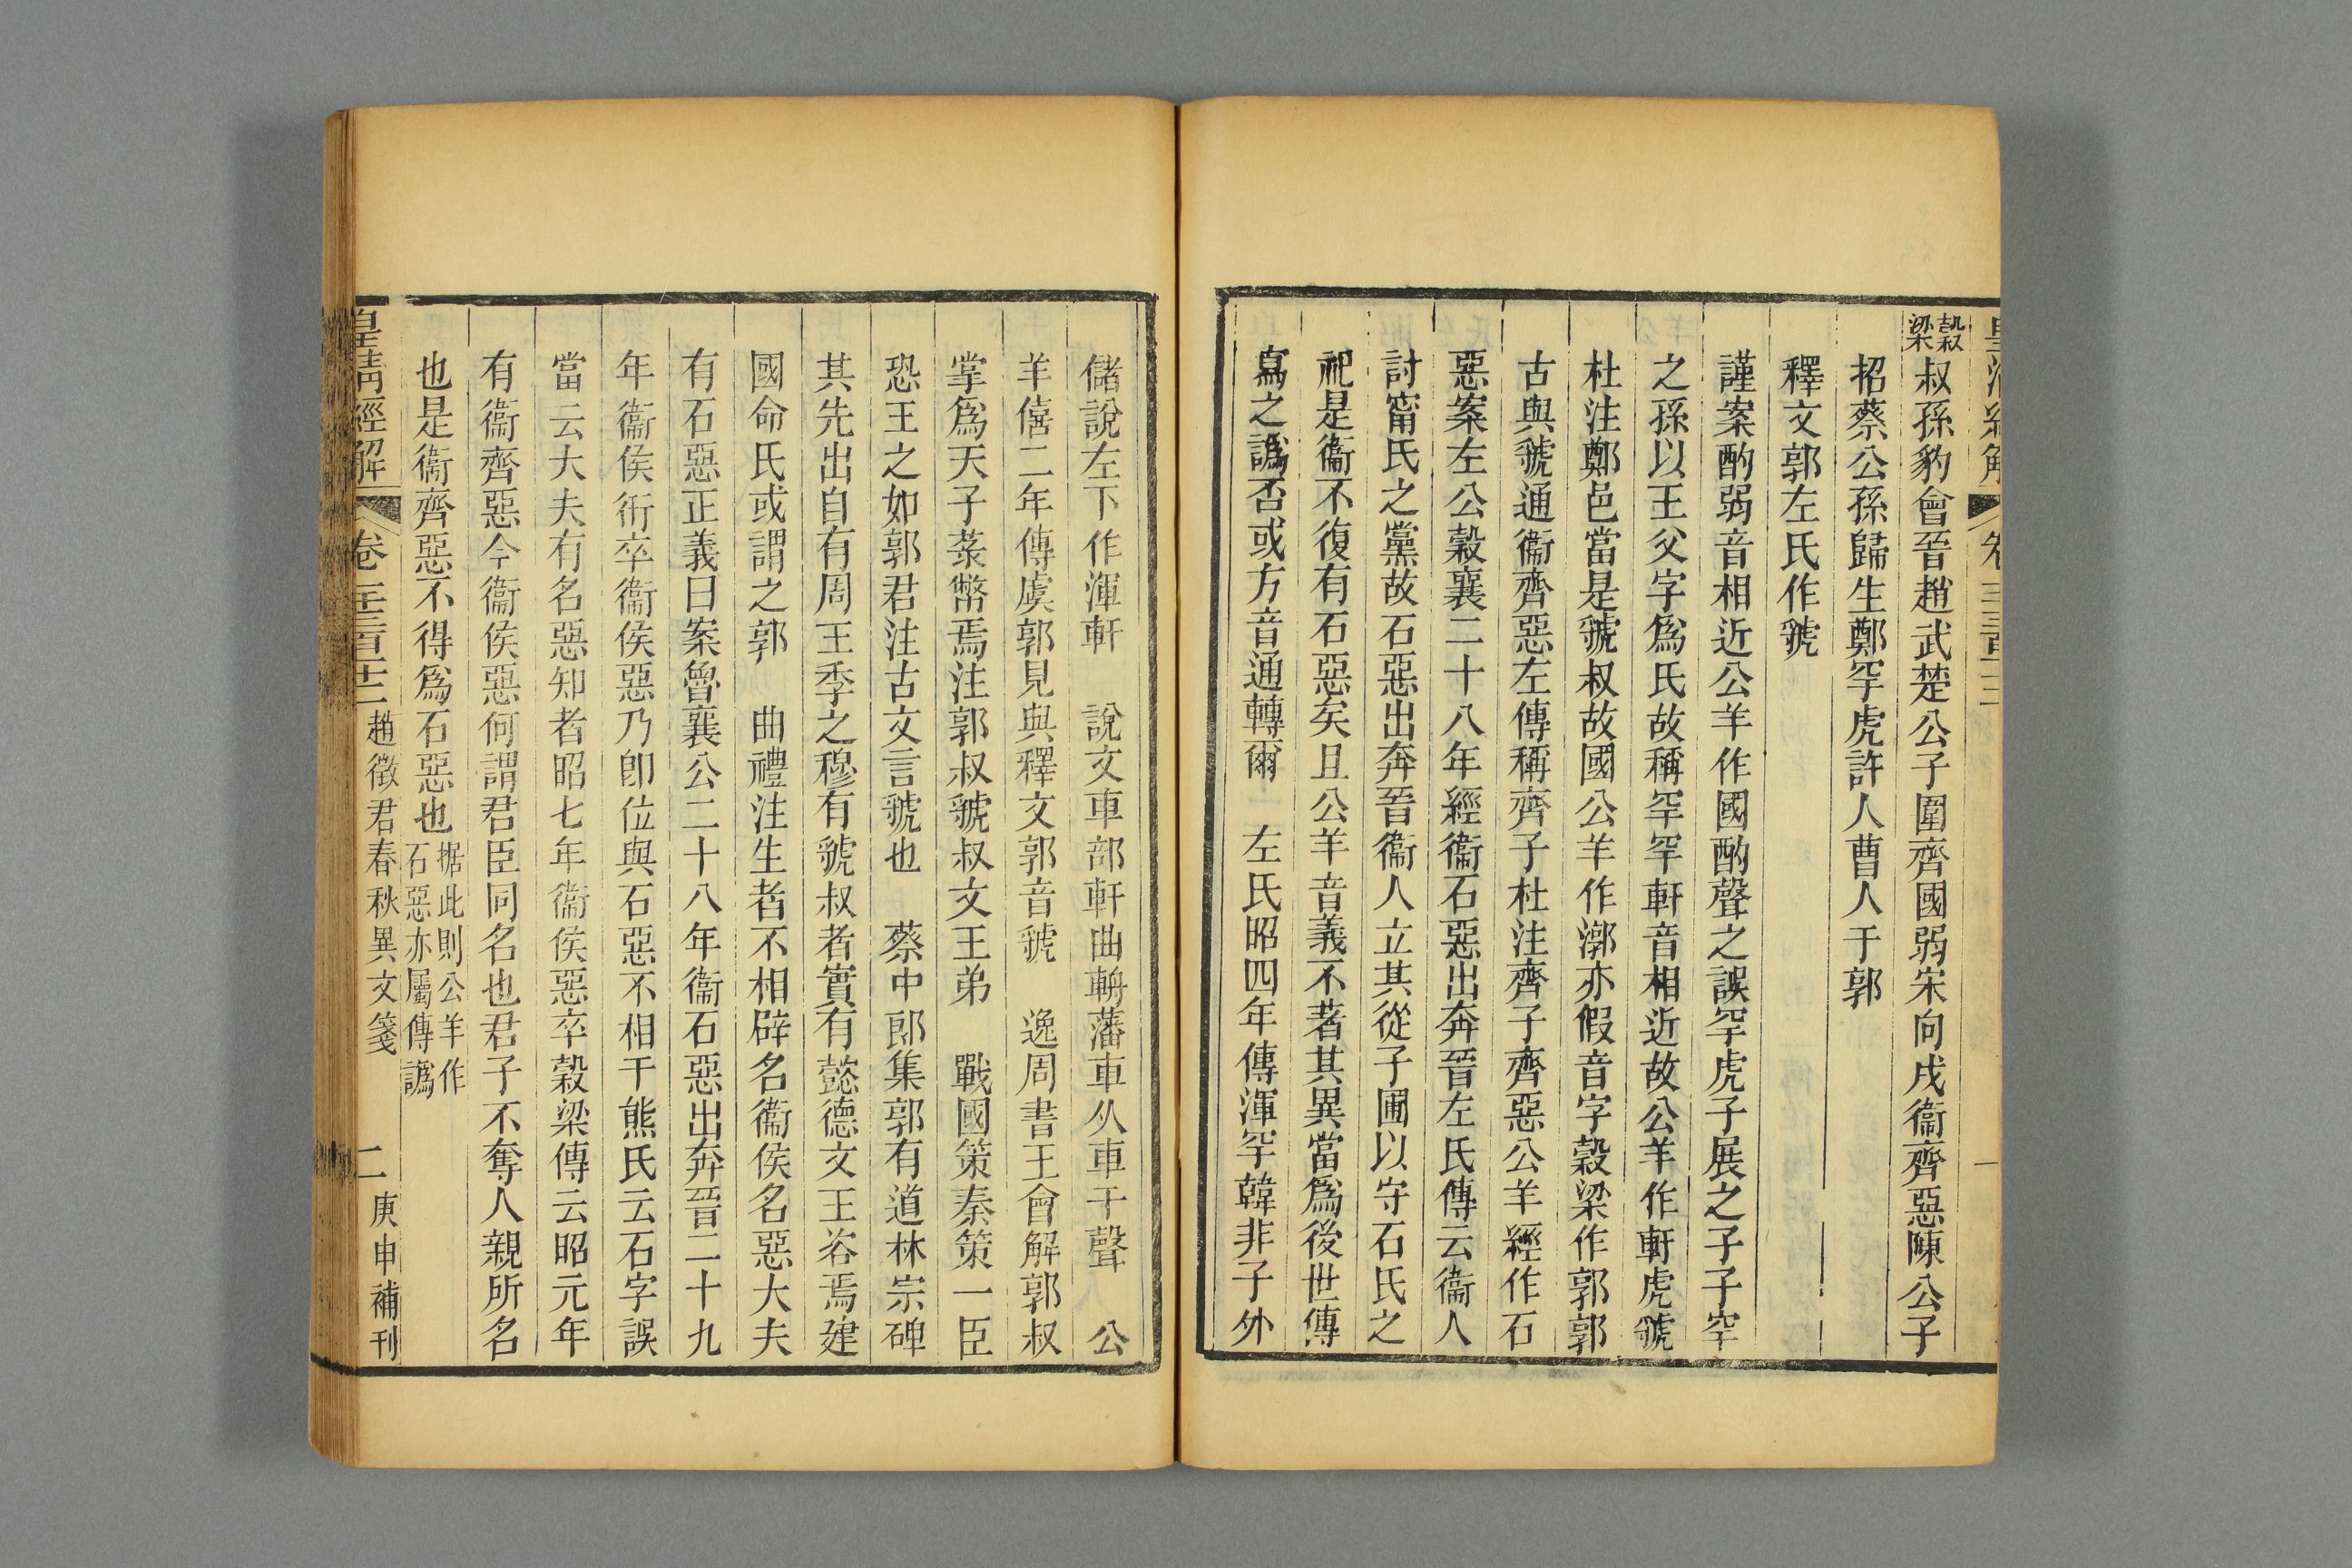 穀梁叔孫豹會晉趙武楚公子圍齊國弱宋向戌衞齊惡陳公子
招蔡公孫歸生鄭罕虎許人曹人于郭
釋文郭左氏作虢
謹案酌弱音相近公羊作國酌聲之誤罕虎子展之子子罕
之孫以王父字爲氏故稱罕罕軒音相近故公羊作軒虎虢
杜注鄭邑當是虢叔故國公羊作漷亦假音字穀梁作郭郭
古與虢通衞齊惡左傳稱齊子杜注齊子齊惡公羊經作石
惡案左公穀襄二十八年經衞石惡出奔晉左氏傳云衞人
討甯氏之黨故石惡出奔晉衞人立其從子圃以守石氏之
祀是衞不復有石惡矣且公羊音義不著其異當爲後世傳
寫之譌否或方音通轉爾 左氏昭四年傳渾罕韓非子外
儲說左下作渾軒 說文車部軒曲輈藩車从車干聲 公
羊僖二年傳虞郭見與釋文郭音虢 逸周書王會解郭叔
掌爲天子菉幣焉注郭叔虢叔文王弟 戰國策秦策一臣
恐王之如郭君注古文言虢也 蔡中郎集郭有道林宗碑
其先出自有周王季之穆有虢叔者實有懿德文王咨焉建
國命氏或謂之郭 曲禮注生者不相辟名衞侯名惡大夫
有石惡正義曰案魯襄公二十八年衞石惡出奔晉二十九
年衞侯衎卒衞侯惡乃卽位與石惡不相干熊氏云石字誤
當云大夫有名惡知者昭七年衞侯惡卒穀梁傳云昭元年
有衞齊惡今衞侯惡何謂君臣同名也君子不奪人親所名
也是衞齊惡不得爲石惡也据此則公羊作石惡亦屬傳譌
皇淸經解 卷 趙徵君春秋異文箋 二 庚申補刊